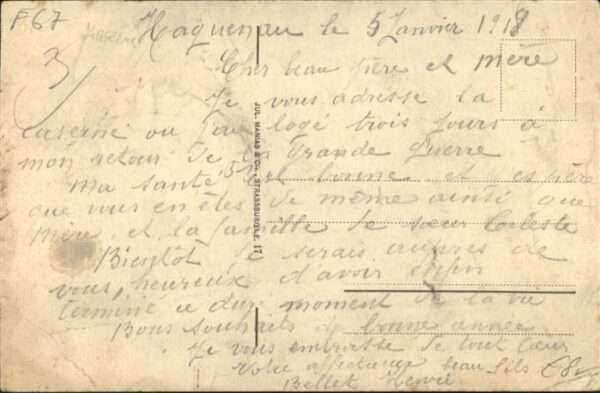 F67
Haguenau le 5 Janvier 1918
Cher beau père et mère
Je vous adresse la
caserne ou j'ai logé trois jours à
mon retour de la Grande Guerre
Ma santé est bonne et espère
que vous en êtes de même ainsi que
mère et la famille de sœur Celeste
Bientot je serais auprès de
vous, heureux d'avoir enfin
terminé ce dur moment de la vie
Bons Souhaits de bonne année
Je vous embrasse de tout Cœur
Votre affectueux beau fils
Bellet Henri
JUL. MANIAS & Cie., STRASSBURG i. E. 17